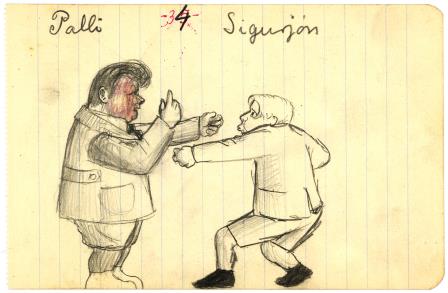 Palli 4 Sigurjón